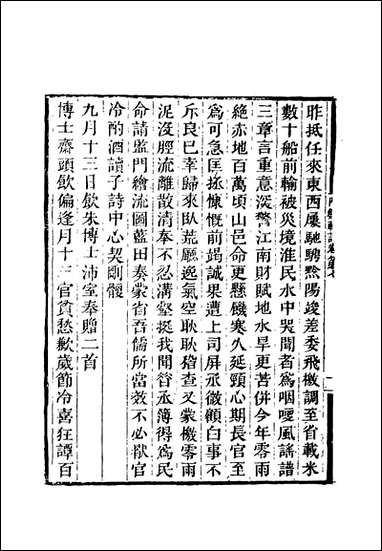 昨抵任來東西屢馳騁黔陽竣差委飛檄調至省載米
數十船前輸被災境淮民水中哭聞者爲咽哽風謠譜
三章言重意深警江南財賦地水旱更苦併今年零雨
絶赤地百萬頃山邑命更懸磯寒久延頸心期長官至
爲可急匡拯慷慨前竭誠果遭上司屏丞微顧白事不
斥良已幸歸來臥荒廳逸氣空耿耿稽查又蒙檄零雨
泥沒脛流離散清奉不忍溝壑挺我聞昝丞簿得爲民
命請監門繪流圖藍田奏蒙省吾儒所當效不必猒官
冷酌酒讀子詩中心契剛骾
九月十三日飲朱博士沛室奉贈二首
博士齋頭飲偏逢月十三官貧愁歉歲節冷喜狂譚百